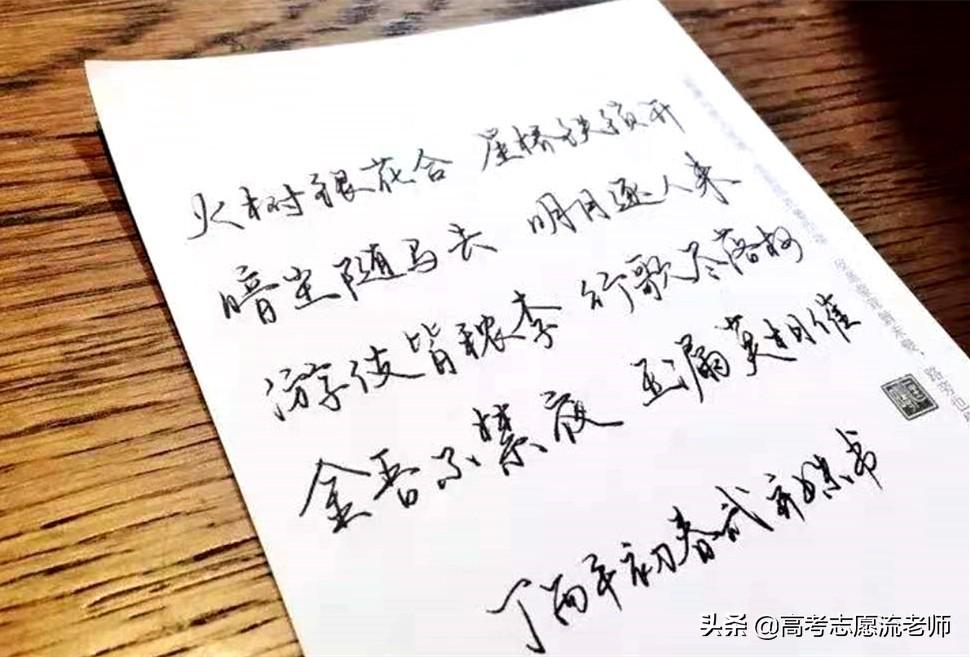 火树银花合 星桥铁锁开
暗尘随马去 明月逐人来
游伎皆秾李 行歌尽落梅
金吾不禁夜 玉漏莫相催
丁酉年初春试新书
头条 @高考志愿流老师